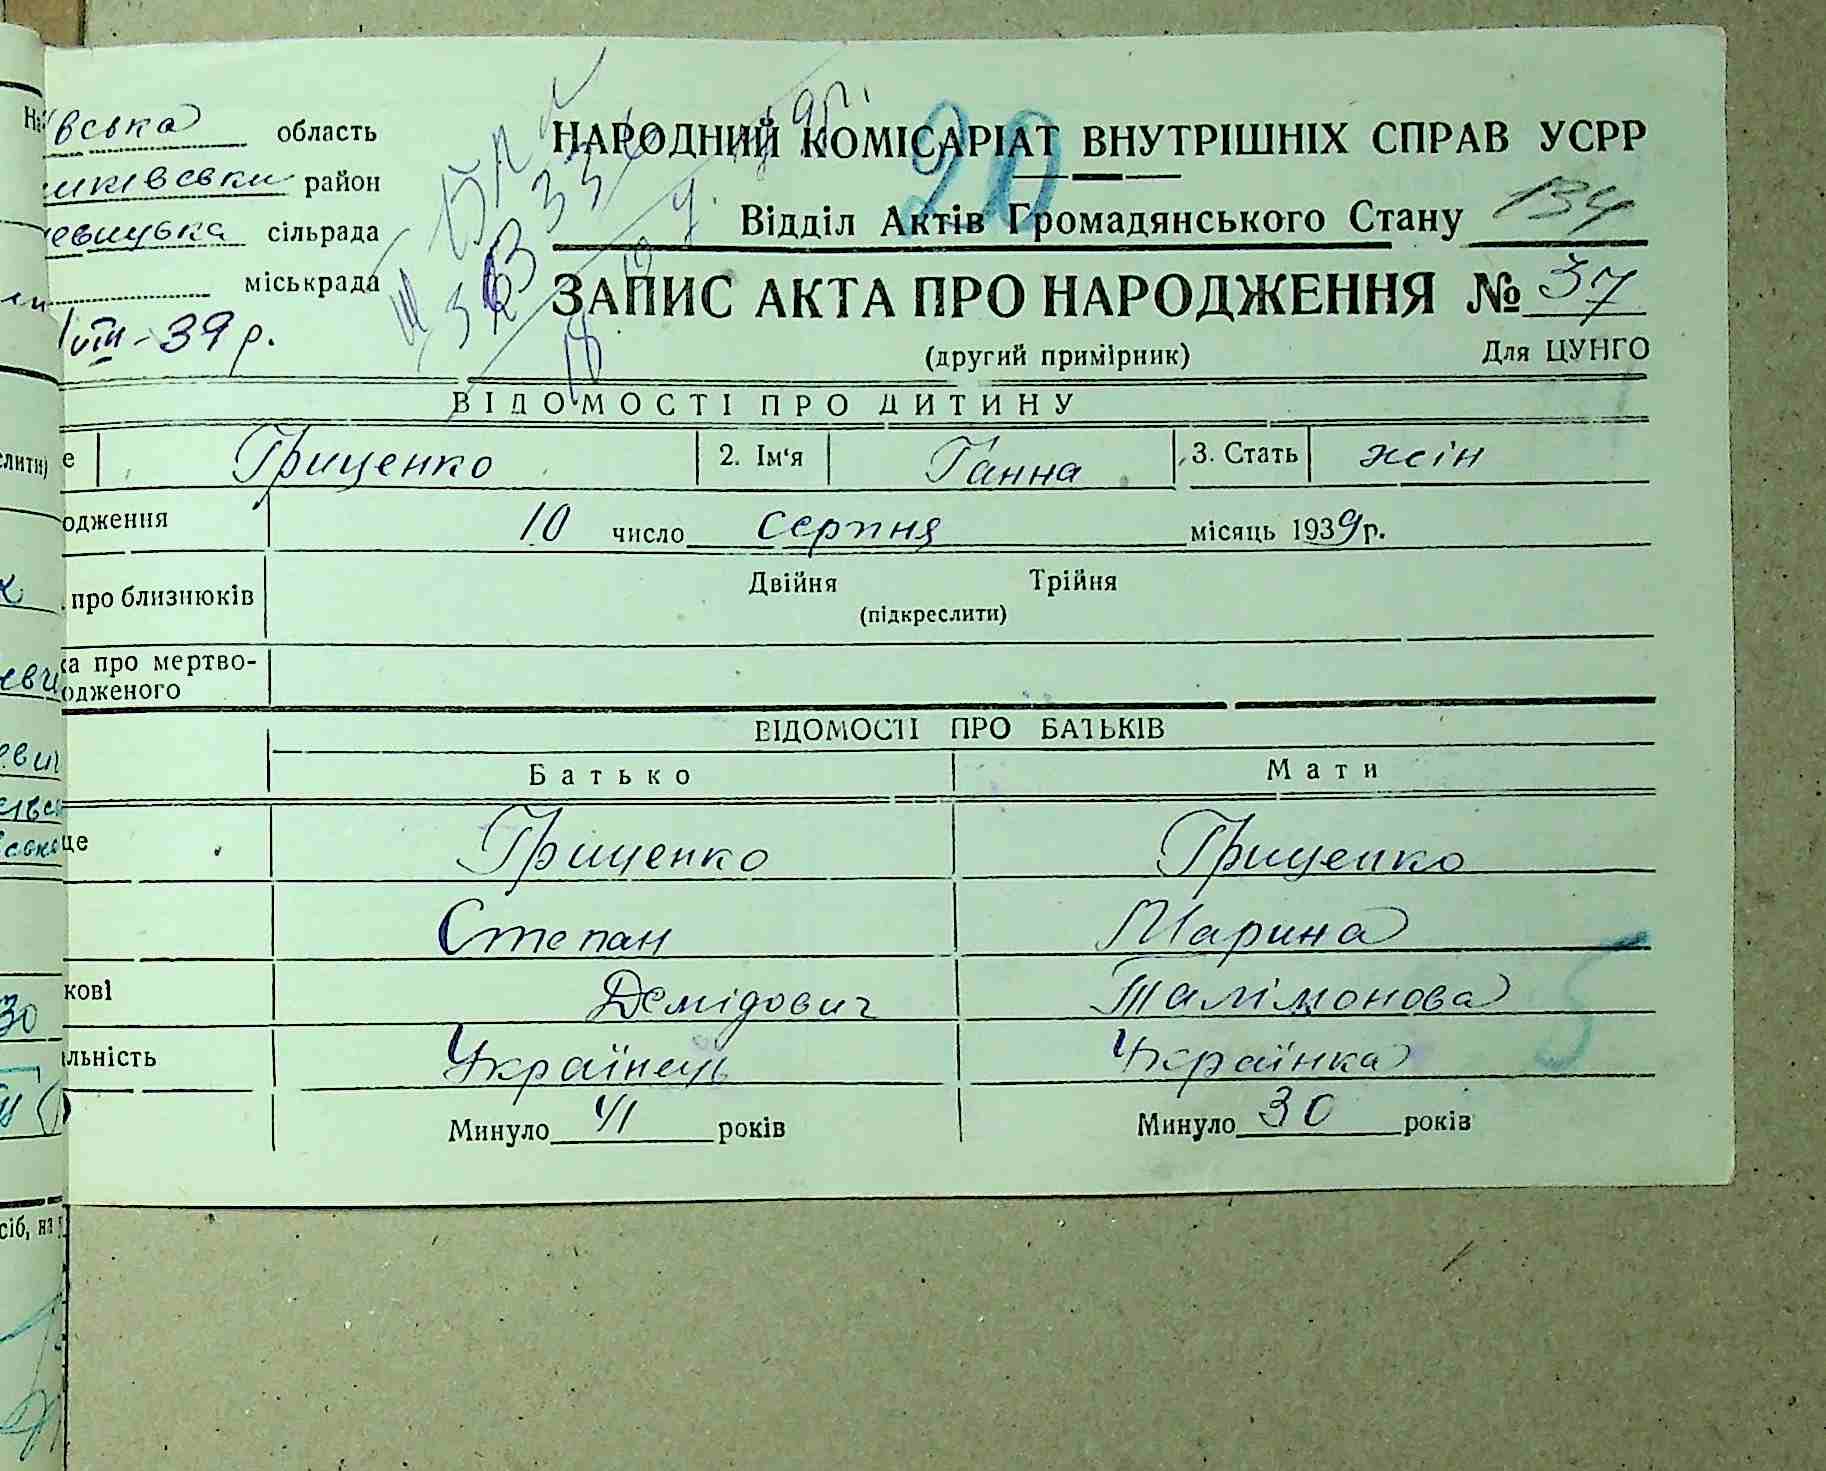 вська область
НАРОДНИЙ КОМІСАРІАТ ВНУТРІШНІХ СПРАВ УСРР
20
мківськи район
Відділ Актів Громадянського Стану 134
евицька сільрада
міськрада
ЗАПИС АКТА ПРО НАРОДЖЕННЯ № 37
VIII - 39 р.
(другий примірник) Для ЦУНГО
ВІДОМОСТІ ПРО ДИТИНУ
е Гриценко 2. Ім'я Ганна 3. Стать жін
одження 10 число серпня місяць 1939 р.
про близнюків Двійня Трійня
(підкреслити)
ка про мертво-
одженого
ВІДОМОСТІ ПРО БАТЬКІВ
Батько Мати
це Гриценко Гриценко
Степан Марина
кові Демідович Талімонова
льність Українець Українка
Минуло 41 років Минуло 30 років
5
30
сіб, на